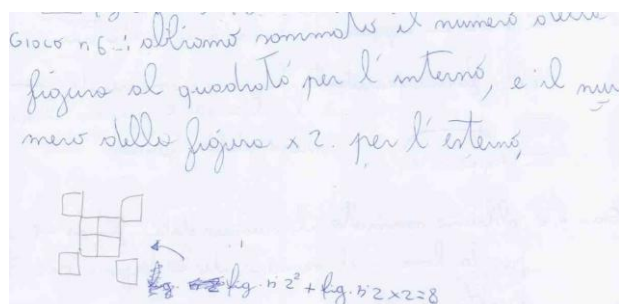 GIOCO n 6-: abbiamo sommato il numero della
figura al quadrato per l'interno, e il nu
mero della figura x 2. per l'esterno,
fig. n 2² + fig. n 2 x 2 = 8